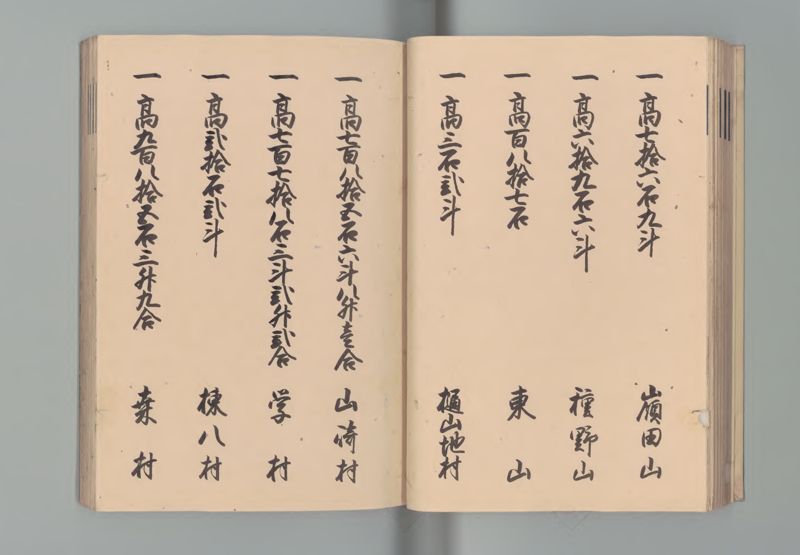 一高七拾六石九斗 嶺田山
一高六拾九石六斗 種野山
一高百八拾七石 東山
一高三石弐斗 樋山地村
一高七百八拾五石六斗八升壱合 山崎村
一高七百七拾八石三斗弐升弐合 学村
一高弐拾石弐斗 棟八村
一高九百八拾五石三升九合 桒村